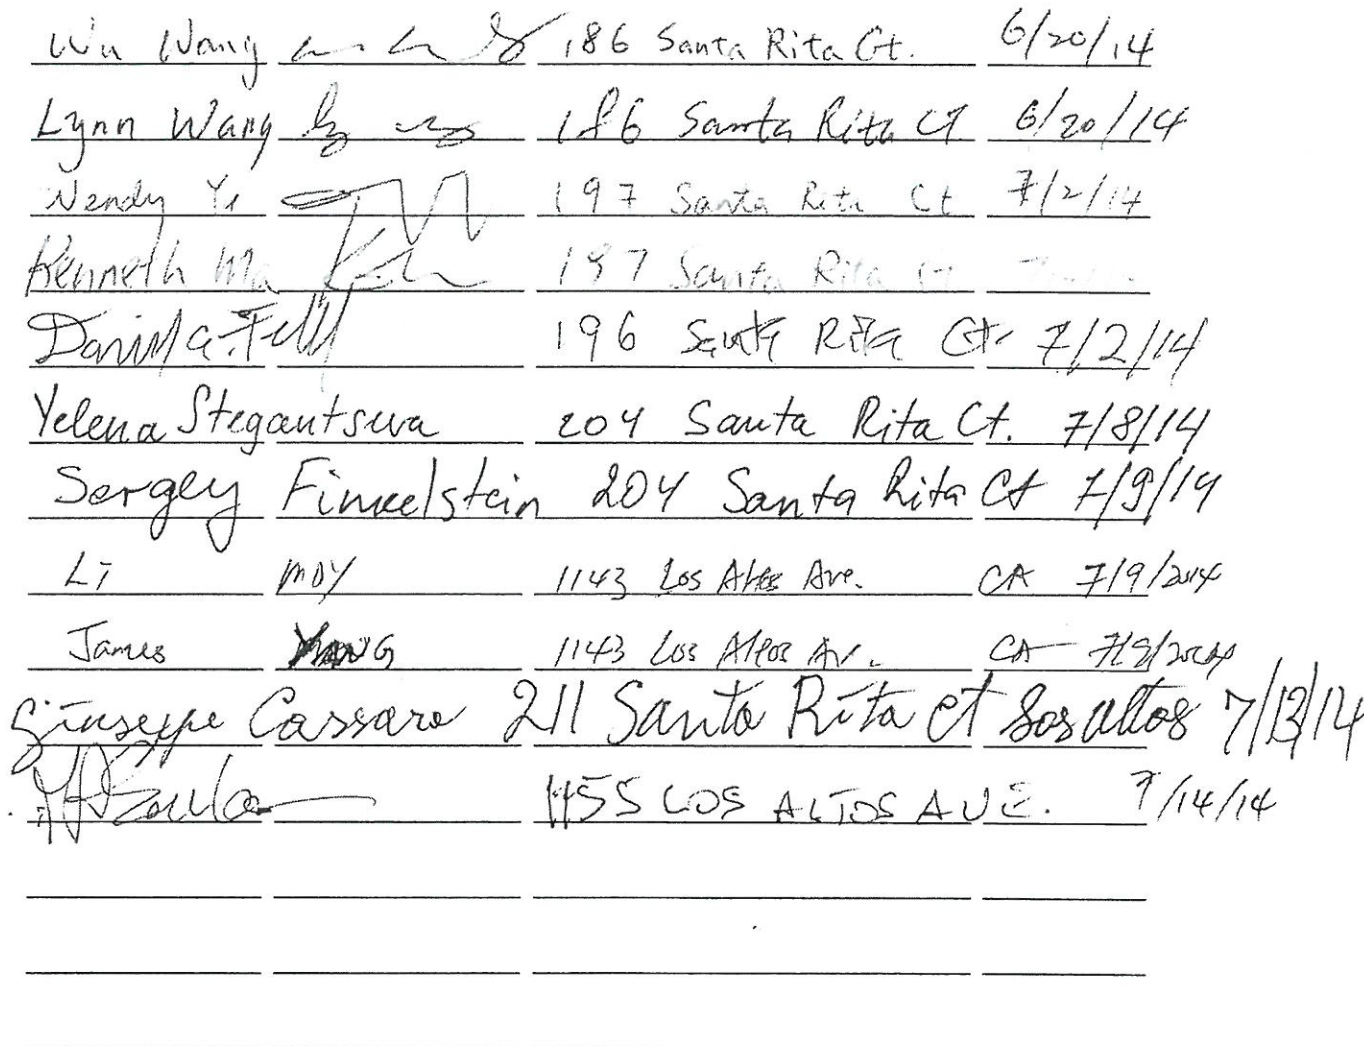 Wu Wang 186 Santa Rita Ct. 6/20/14
Lynn Wang 186 Santa Rita Ct 6/20/14
Wendy Yi 197 Santa Rita Ct 7/2/14
Kenneth Ma 197 Santa Rita Ct
196 Santa Rita Ct. 7/2/14
Yelena Stegantseva 204 Santa Rita Ct. 7/8/14
Sergey Finkelstein 204 Santa Rita Ct 7/9/14
Li MOY 1143 Los Altos Ave. CA 7/9/2014
James YANG 1143 Los Altos Av. CA 7/9/2014
Giuseppe Cassaro 211 Santa Rita ct Los altos 7/13/14
1155 LOS ALTOS AVE. 7/14/14